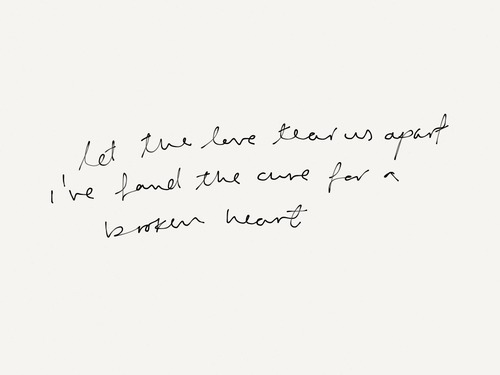 let the love tear us apart
i've found the cure for a
broken heart